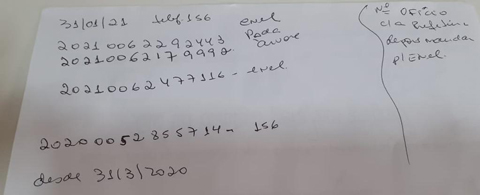 31/01/21 telef. 156 enel
20210062292443 Poda
20210062179992 árvore
20210062477116 - enel
20200052855714 - 156
desde 31/3/2020
Nº Ofício
da Prefeitura
depois mandar
p/ Enel